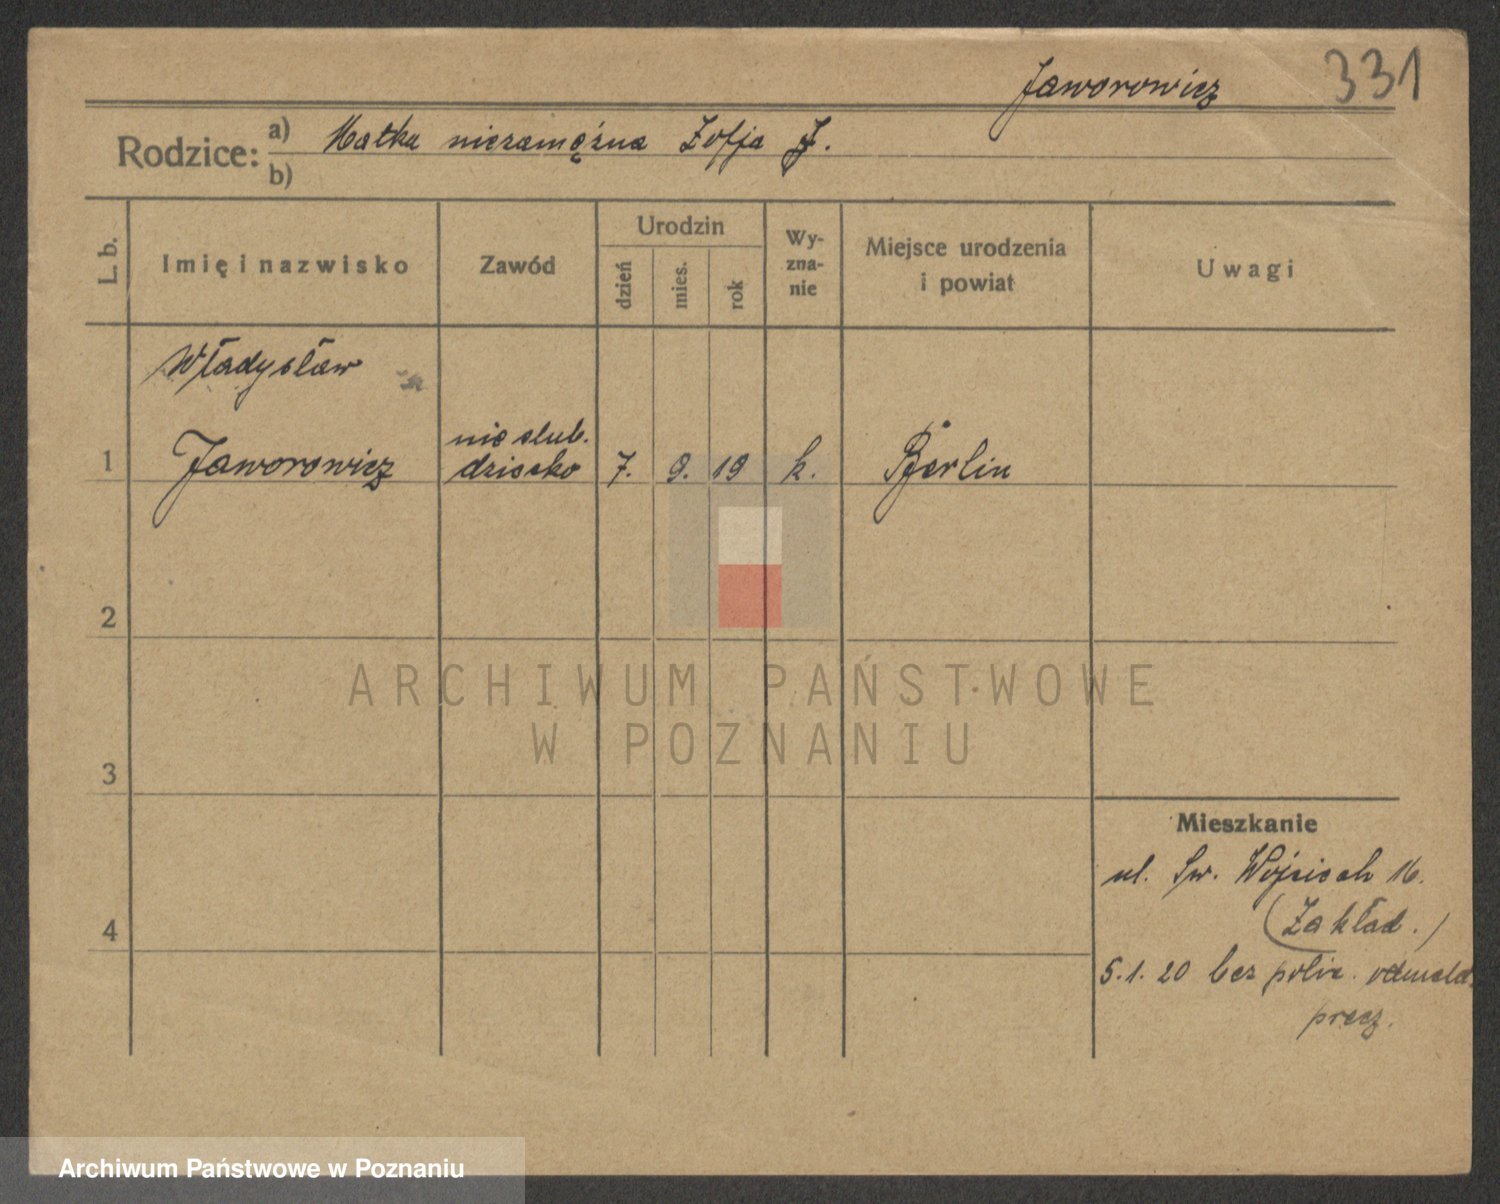 Jaworowicz 331
Rodzice: a) Matka niezamężna Zofja J.
b)
L. b.
Imię i nazwisko
Zawód
Urodzin
dzień
mies.
rok
Wy-
zna-
nie
Miejsce urodzenia
i powiat
Uwagi
Władysław
1 Jaworowicz
nieslub.
dziecko
7. 9. 19 k. Berlin
2
3
4
ARCHIWUM PAŃSTWOWE
W POZNANIU
Mieszkanie
ul. Św. Wojciech 16.
(Zakład.)
5.1.20 bez polic. odmeld.
precz.
Archiwum Państwowe w Poznaniu